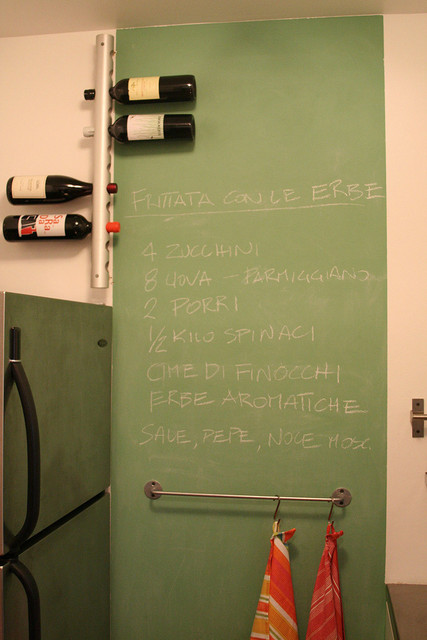 FRITTATA CON LE ERBE
4 ZUCCHINI
8 UOVA - PARMIGGIANO
2 PORRI
1/2 KILO SPINACI
CIME DI FINOCCHI
ERBE AROMATICHE
SALE, PEPE, NOCE MOSC.